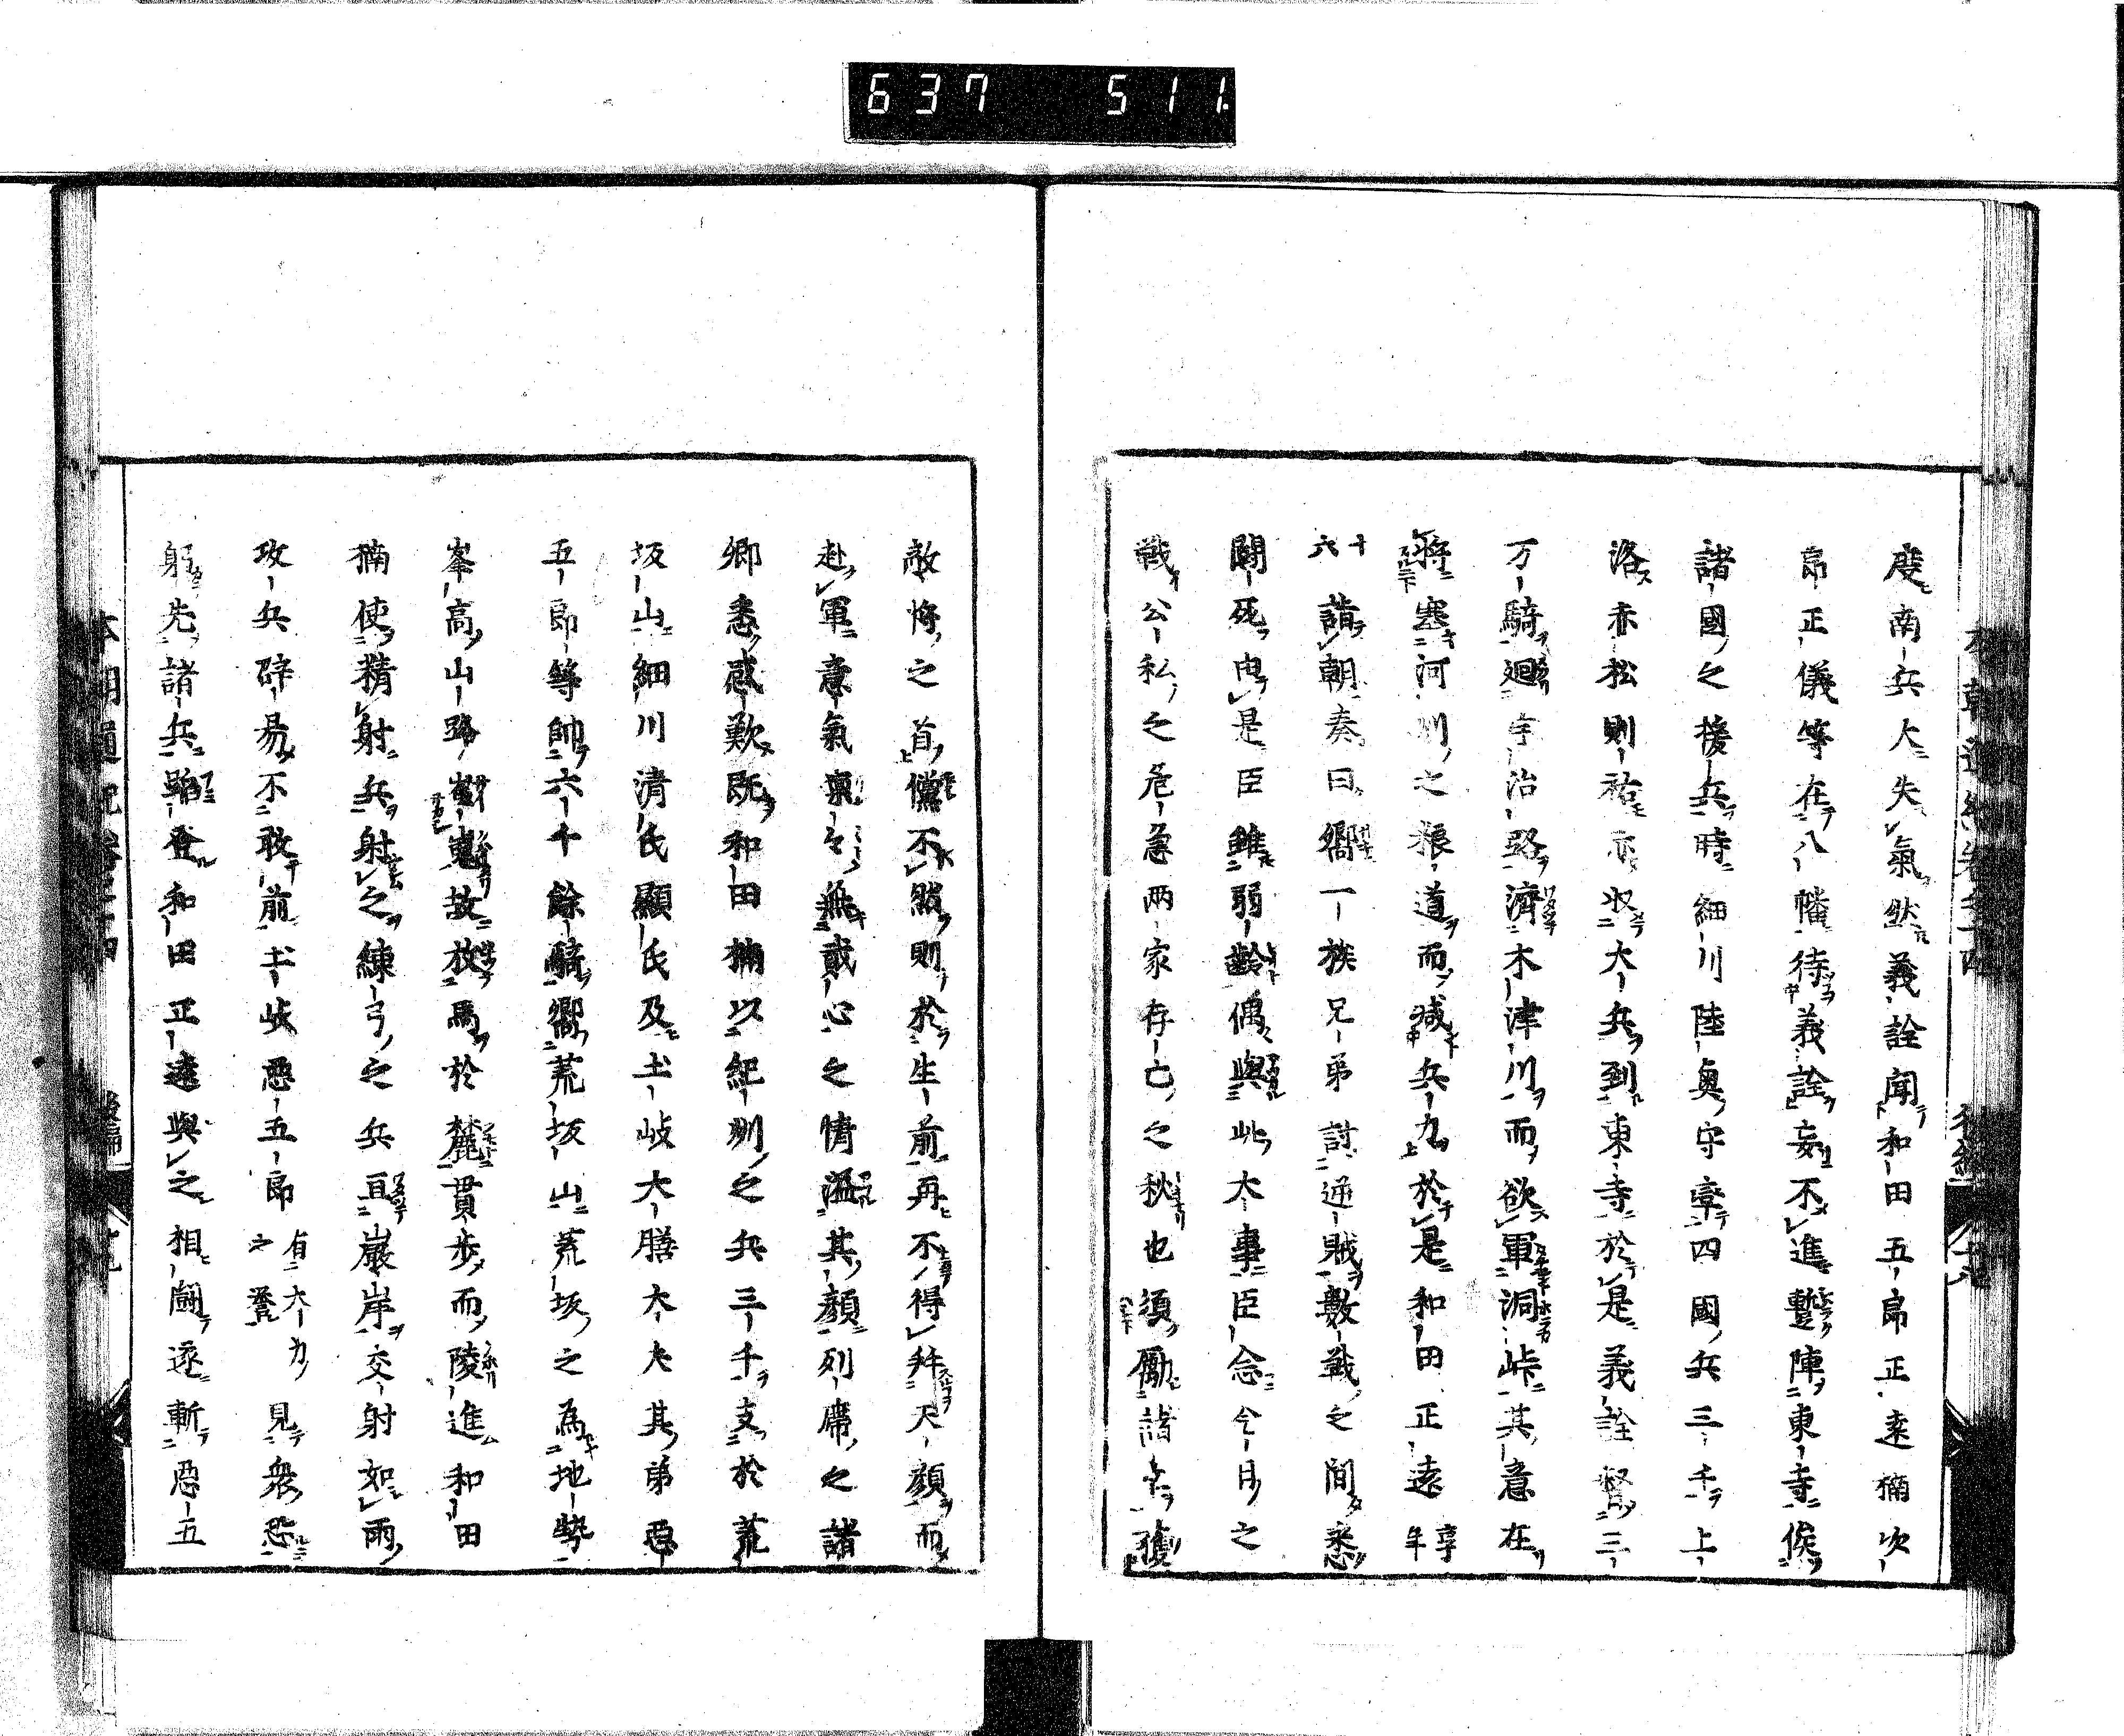 637 511
度南兵大失氣然義詮聞和田五郎正遠楠次
郎正儀等在八幡待義詮妄不進蹔陣東寺俟
諸國之援兵時細川陸奥守率四國兵三千上
洛赤松則祐亦収大兵到東寺於是義詮督三
万騎廻宇治路濟木津川而欲軍洞峠其意在
將塞河州之粮道而減兵力於是和田正遠享年
十六詣朝奏曰嚮一族兄弟討逆賊數戰之間悉
鬪死由是臣雖弱齡偶與此大事臣念今日之
戰公私之危急兩家存亡之秋也須勵諸卒獲
敵將之首儻不然則於生前再不得拜天顔而
赴軍意氣凛々無貳心之情溢其顔列席之諸
卿悉感歎既和田楠以紀州之兵三千支於荒
坂山細川清氏顯氏及土岐大膳大夫其弟惡
五郎等帥六千餘騎嚮荒坂山荒坂之為地勢
峯高山路嶻嵬故放馬於麓貫歩而陵進和田
楠使精射兵射之練弓之兵亘巖岸交射如雨
攻兵辟易不敢前土岐惡五郎有大力之譽見衆恐
躬先諸兵躋登和田正遠與之相鬪逐斬惡五